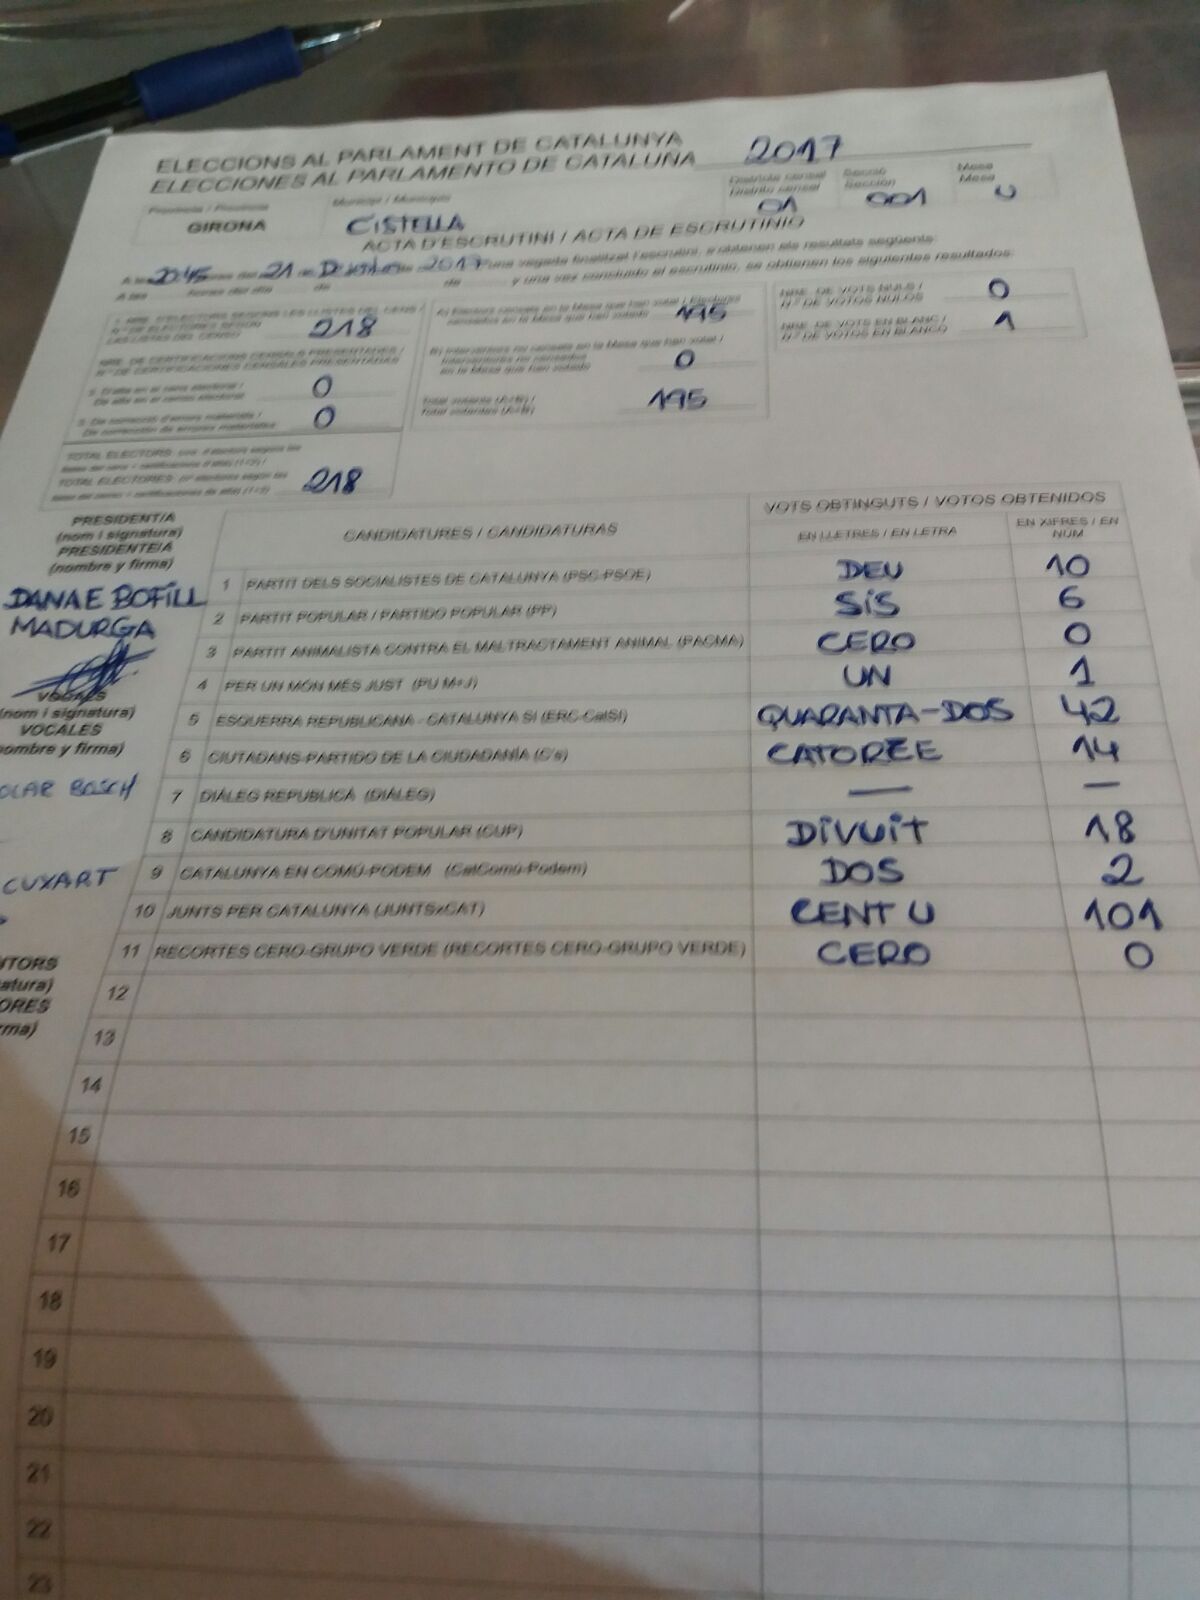 ELECCIONS AL PARLAMENT DE CATALUNYA
ELECCIONES AL PARLAMENTO DE CATALUÑA 2017
Província / Provincia
GIRONA
Municipi / Municipio
CISTELLA
Districte censal
Distrito censal
01
Secció
Sección
001
Mesa
Mesa
U
ACTA D'ESCRUTINI / ACTA DE ESCRUTINIO
A les 20:45 hores del 21 de Desembre de 2017 una vegada finalitzat l'escrutini, s'obtenen els resultats següents:
A las horas del día de de y una vez concluido el escrutinio, se obtienen los siguientes resultados:
1. NRE. D'ELECTORS SEGONS LES LLISTES DEL CENS /
Nº DE ELECTORES SEGÚN
LAS LISTAS DEL CENSO 218
NRE. DE CERTIFICACIONS CENSALS PRESENTADES /
Nº DE CERTIFICACIONES CENSALES PRESENTADAS
2. D'alta en el cens electoral /
De alta en el censo electoral 0
3. De correcció d'errors materials /
De corrección de errores materiales 0
TOTAL ELECTORS:
TOTAL ELECTORES: 218
A) Electors censats en la Mesa que han votat / Electores
censados en la Mesa que han votado 195
B) Interventors no censats en la Mesa que han votat /
Interventores no censados
en la Mesa que han votado 0
Total votants (A+B) /
Total votantes (A+B) 195
NRE. DE VOTS NULS /
N.º DE VOTOS NULOS 0
NRE. DE VOTS EN BLANC /
N.º DE VOTOS EN BLANCO 1
PRESIDENT/A
(nom i signatura)
PRESIDENTE/A
(nombre y firma)
DANAE BOFILL
MADURGA
VOCALS
(nom i signatura)
VOCALES
ombre y firma)
OLAR BOSCH
CUXART
NTORS
atura)
ORES
rma)
CANDIDATURES / CANDIDATURAS
VOTS OBTINGUTS / VOTOS OBTENIDOS
EN LLETRES / EN LETRA
EN XIFRES / EN NÚM
1 PARTIT DELS SOCIALISTES DE CATALUNYA (PSC-PSOE) DEU 10
2 PARTIT POPULAR / PARTIDO POPULAR (PP) SIS 6
3 PARTIT ANIMALISTA CONTRA EL MALTRACTAMENT ANIMAL (PACMA) CERO 0
4 PER UN MÓN MÉS JUST (PU M+J) UN 1
5 ESQUERRA REPUBLICANA - CATALUNYA SÍ (ERC-CatSÍ) QUARANTA-DOS 42
6 CIUTADANS-PARTIDO DE LA CIUDADANÍA (C's) CATORZE 14
7 DIÀLEG REPUBLICÀ (DIÀLEG) — —
8 CANDIDATURA D'UNITAT POPULAR (CUP) DIVUIT 18
9 CATALUNYA EN COMÚ-PODEM (CatComú-Podem) DOS 2
10 JUNTS PER CATALUNYA (JUNTSxCAT) CENT U 101
11 RECORTES CERO-GRUPO VERDE (RECORTES CERO-GRUPO VERDE) CERO 0
12
13
14
15
16
17
18
19
20
21
22
23